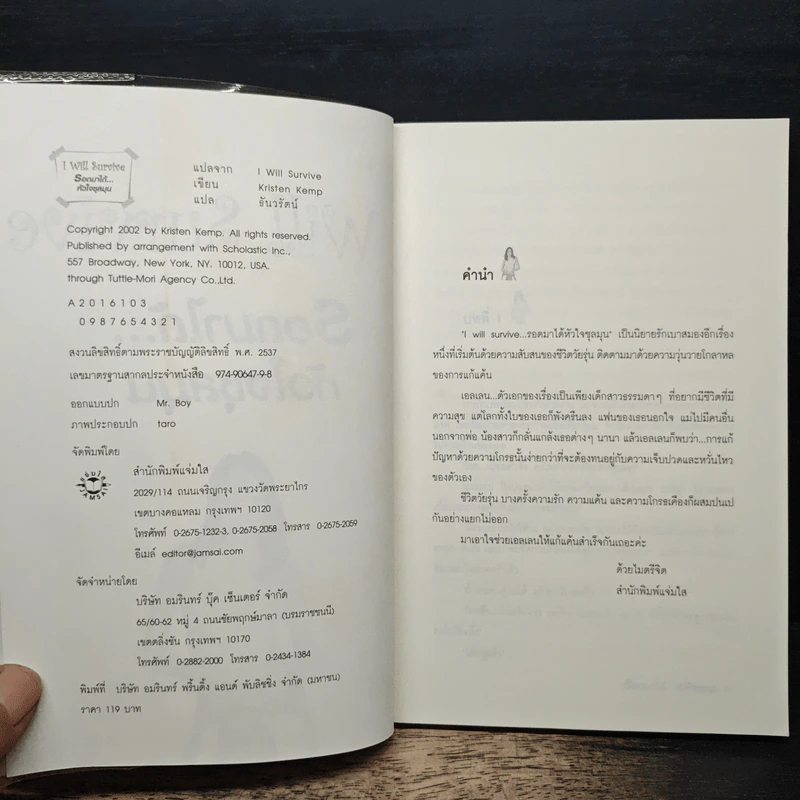 I Will Survive
รอดมาได้...
หัวใจชุลมุน
แปลจาก I Will Survive
เขียน Kristen Kemp
แปล ธันวรัตน์
Copyright 2002 by Kristen Kemp. All rights reserved.
Published by arrangement with Scholastic Inc.,
557 Broadway, New York, NY. 10012, USA.
through Tuttle-Mori Agency Co.,Ltd.
A 2 0 1 6 1 0 3
0 9 8 7 6 5 4 3 2 1
สงวนลิขสิทธิ์ตามพระราชบัญญัติลิขสิทธิ์ พ.ศ. 2537
เลขมาตรฐานสากลประจำหนังสือ 974-90647-9-8
ออกแบบปก Mr. Boy
ภาพประกอบปก taro
จัดพิมพ์โดย
สำนักพิมพ์แจ่มใส
2029/114 ถนนเจริญกรุง แขวงวัดพระยาไกร
เขตบางคอแหลม กรุงเทพฯ 10120
โทรศัพท์ 0-2675-1232-3, 0-2675-2058 โทรสาร 0-2675-2059
อีเมล์ editor@jamsai.com
จัดจำหน่ายโดย
บริษัท อมรินทร์ บุ๊ค เซ็นเตอร์ จำกัด
65/60-62 หมู่ 4 ถนนชัยพฤกษ์มาลา (บรมราชชนนี)
เขตตลิ่งชัน กรุงเทพฯ 10170
โทรศัพท์ 0-2882-2000 โทรสาร 0-2434-1384
พิมพ์ที่ บริษัท อมรินทร์ พริ้นติ้ง แอนด์ พับลิชชิ่ง จำกัด (มหาชน)
ราคา 119 บาท
คำนำ
"I will survive...รอดมาได้หัวใจชุลมุน" เป็นนิยายรักเบาสมองอีกเรื่อง
หนึ่งที่เริ่มต้นด้วยความสับสนของชีวิตวัยรุ่น ติดตามมาด้วยความวุ่นวายโกลาหล
ของการแก้แค้น
เอลเลน...ตัวเอกของเรื่องเป็นเพียงเด็กสาวธรรมดาๆ ที่อยากมีชีวิตที่มี
ความสุข แต่โลกทั้งใบของเธอก็พังครืนลง แฟนของเธอนอกใจ แม่ไปมีคนอื่น
นอกจากพ่อ น้องสาวก็กลั่นแกล้งเธอต่างๆ นานา แล้วเอลเลนก็พบว่า...การแก้
ปัญหาด้วยความโกรธนั้นง่ายกว่าที่จะต้องทนอยู่กับความเจ็บปวดและหวั่นไหว
ของตัวเอง
ชีวิตวัยรุ่น บางครั้งความรัก ความแค้น และความโกรธเคืองก็ผสมปนเป
กันอย่างแยกไม่ออก
มาเอาใจช่วยเอลเลนให้แก้แค้นสำเร็จกันเถอะค่ะ
ด้วยไมตรีจิต
สำนักพิมพ์แจ่มใส